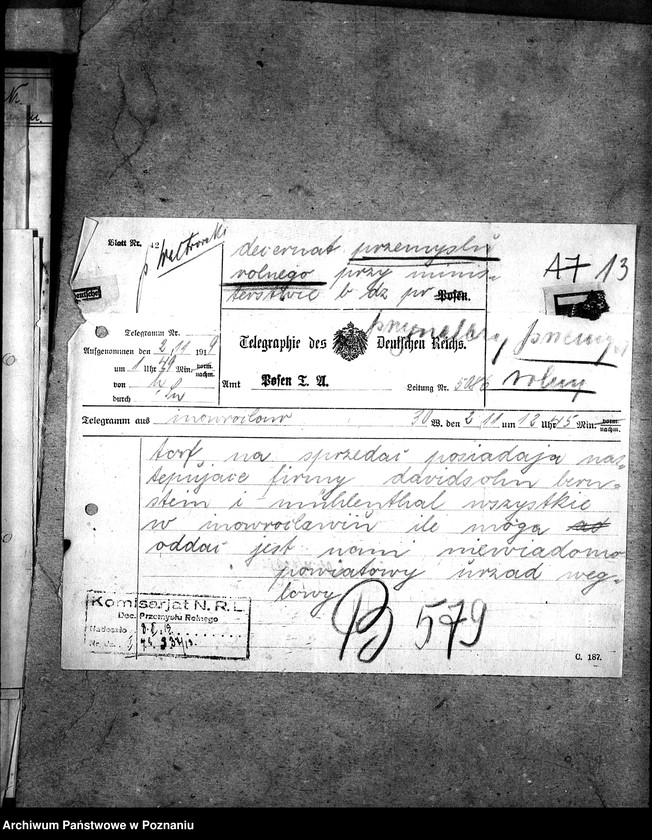 Blatt Nr. 42
decernat przemyslu
rolnego przy minis-
terstwie b dz pr Posen.
A7 13
Telegramm Nr.
Aufgenommen den 2 11 1919
um 1 Uhr 49 Min. vorm. nachm.
von
durch
Telegraphie des Deutschen Reichs.
Amt Posen T. A.
Leitung Nr.
rolny
Telegramm aus inowroclaw 30 W. den 2 11 um 12 Uhr 45 Min. vorm. nachm.
torf na sprzedać posiadaja nas-
tepujace firmy davidsohn bern-
stein i mühlenthal wszystkie
w inowroclawiu ile moga
oddać jest nami niewiadomo
powiatowy urzad weg-
lowy
Komisarjat N. R. L.
Dec. Przemysłu Rolnego
Nadeszło
B 579
C. 187.
Archiwum Państwowe w Poznaniu